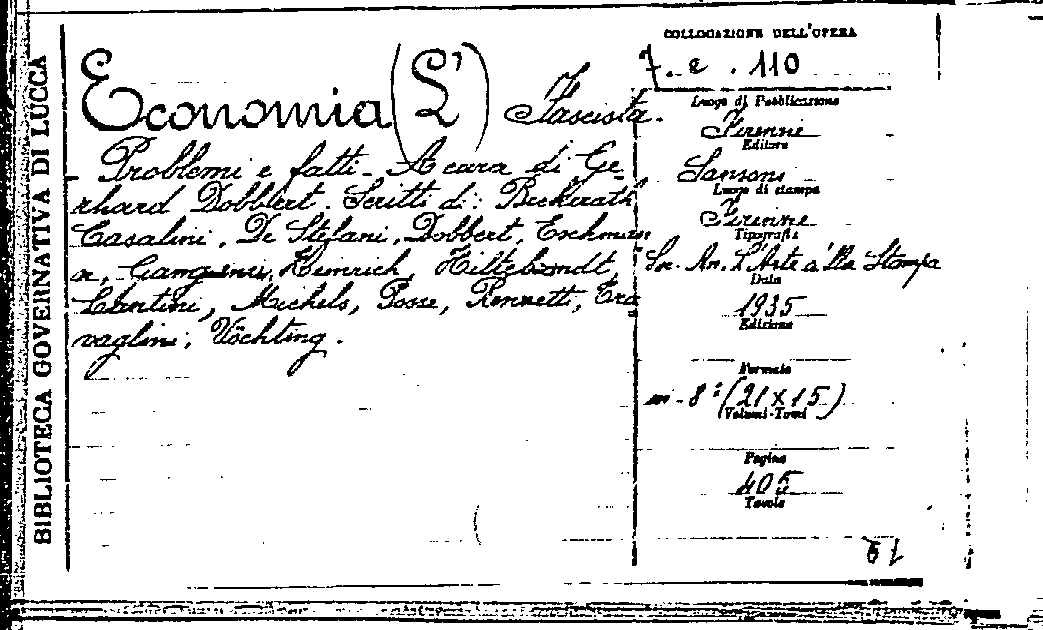 BIBLIOTECA GOVERNATIVA DI LUCCA
Economia (L') Fascista.
Problemi e fatti - A cura di Ge-
rhard Dobbert. Scritti di: Beckerath
Casalini, De Stefani, Dobbert, Eschman
n, Heinrich, Hiltebrandt,
Lantini, Michels, Posse, Tra
vaglini, Vöchting.
COLLOCAZIONE DELL'OPERA
7. e. 110
Luogo di Pubblicazione
Firenze
Editore
Sansoni
Luogo di stampa
Firenze
Tipografia
Soc. An. L'Arte della Stampa
Data
1935
Edizione
Formato
in-8° (21x15)
Volumi-Tomi
Pagine
405
Tavole